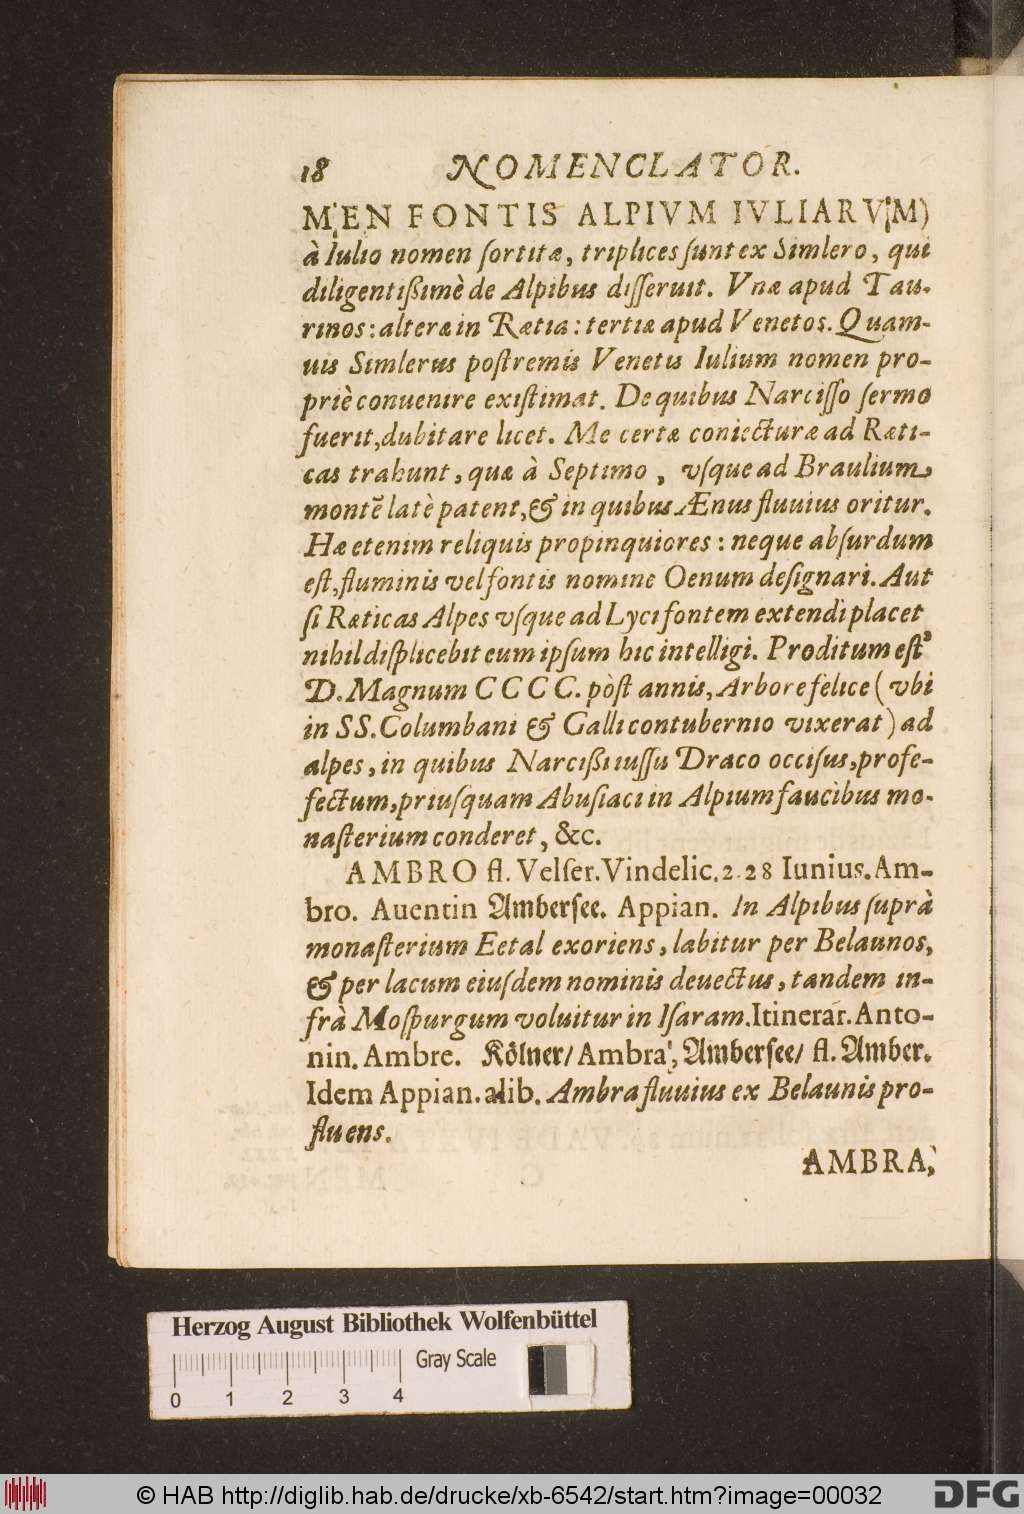 18 NOMENCLATOR.
MEN FONTIS ALPIVM IVLIARVM)
à Iulio nomen ſortitæ, triplices ſunt ex Simlero, qui
diligentißimè de Alpibus diſſeruit. Vnæ apud Tau-
rinos: alteræ in Rætia: tertiæ apud Venetos. Quam-
uis Simlerus poſtremis Venetis Iulium nomen pro-
priè conuenire exiſtimat. De quibus Narciſſo ſermo
fuerit, dubitare licet. Me certæ coniecturæ ad Ræti-
cas trahunt, quæ à Septimo, vſque ad Braulium
montē latè patent, & in quibus Ænus fluuius oritur.
Hæ etenim reliquis propinquiores: neque abſurdum
eſt, fluminis vel fontis nomine Oenum deſignari. Aut
ſi Ræticas Alpes vſque ad Lyci fontem extendi placet
nihil diſplicebit eum ipſum hic intelligi. Proditum eſt
D. Magnum CCCC. pòſt annis, Arbore felice (vbi
in SS. Columbani & Galli contubernio vixerat) ad
alpes, in quibus Narcißi iuſſu Draco occiſus, profe-
fectum, priuſquam Abuſiaci in Alpium faucibus mo-
naſterium conderet, &c.
AMBRO fl. Velſer. Vindelic. 2.28 Iunius. Am-
bro. Auentin Ambersee. Appian. In Alpibus ſuprà
monaſterium Eetal exoriens, labitur per Belaunos,
& per lacum eiuſdem nominis deuectus, tandem in-
frà Moſpurgum voluitur in Iſaram. Itinerar. Anto-
nin. Ambre. Kölner/ Ambra, Ambersee/ fl. Amber.
Idem Appian. alib. Ambra fluuius ex Belaunis pro-
fluens.
AMBRA,
Herzog August Bibliothek Wolfenbüttel
Gray Scale
0 1 2 3 4
© HAB http://diglib.hab.de/drucke/xb-6542/start.htm?image=00032
DFG